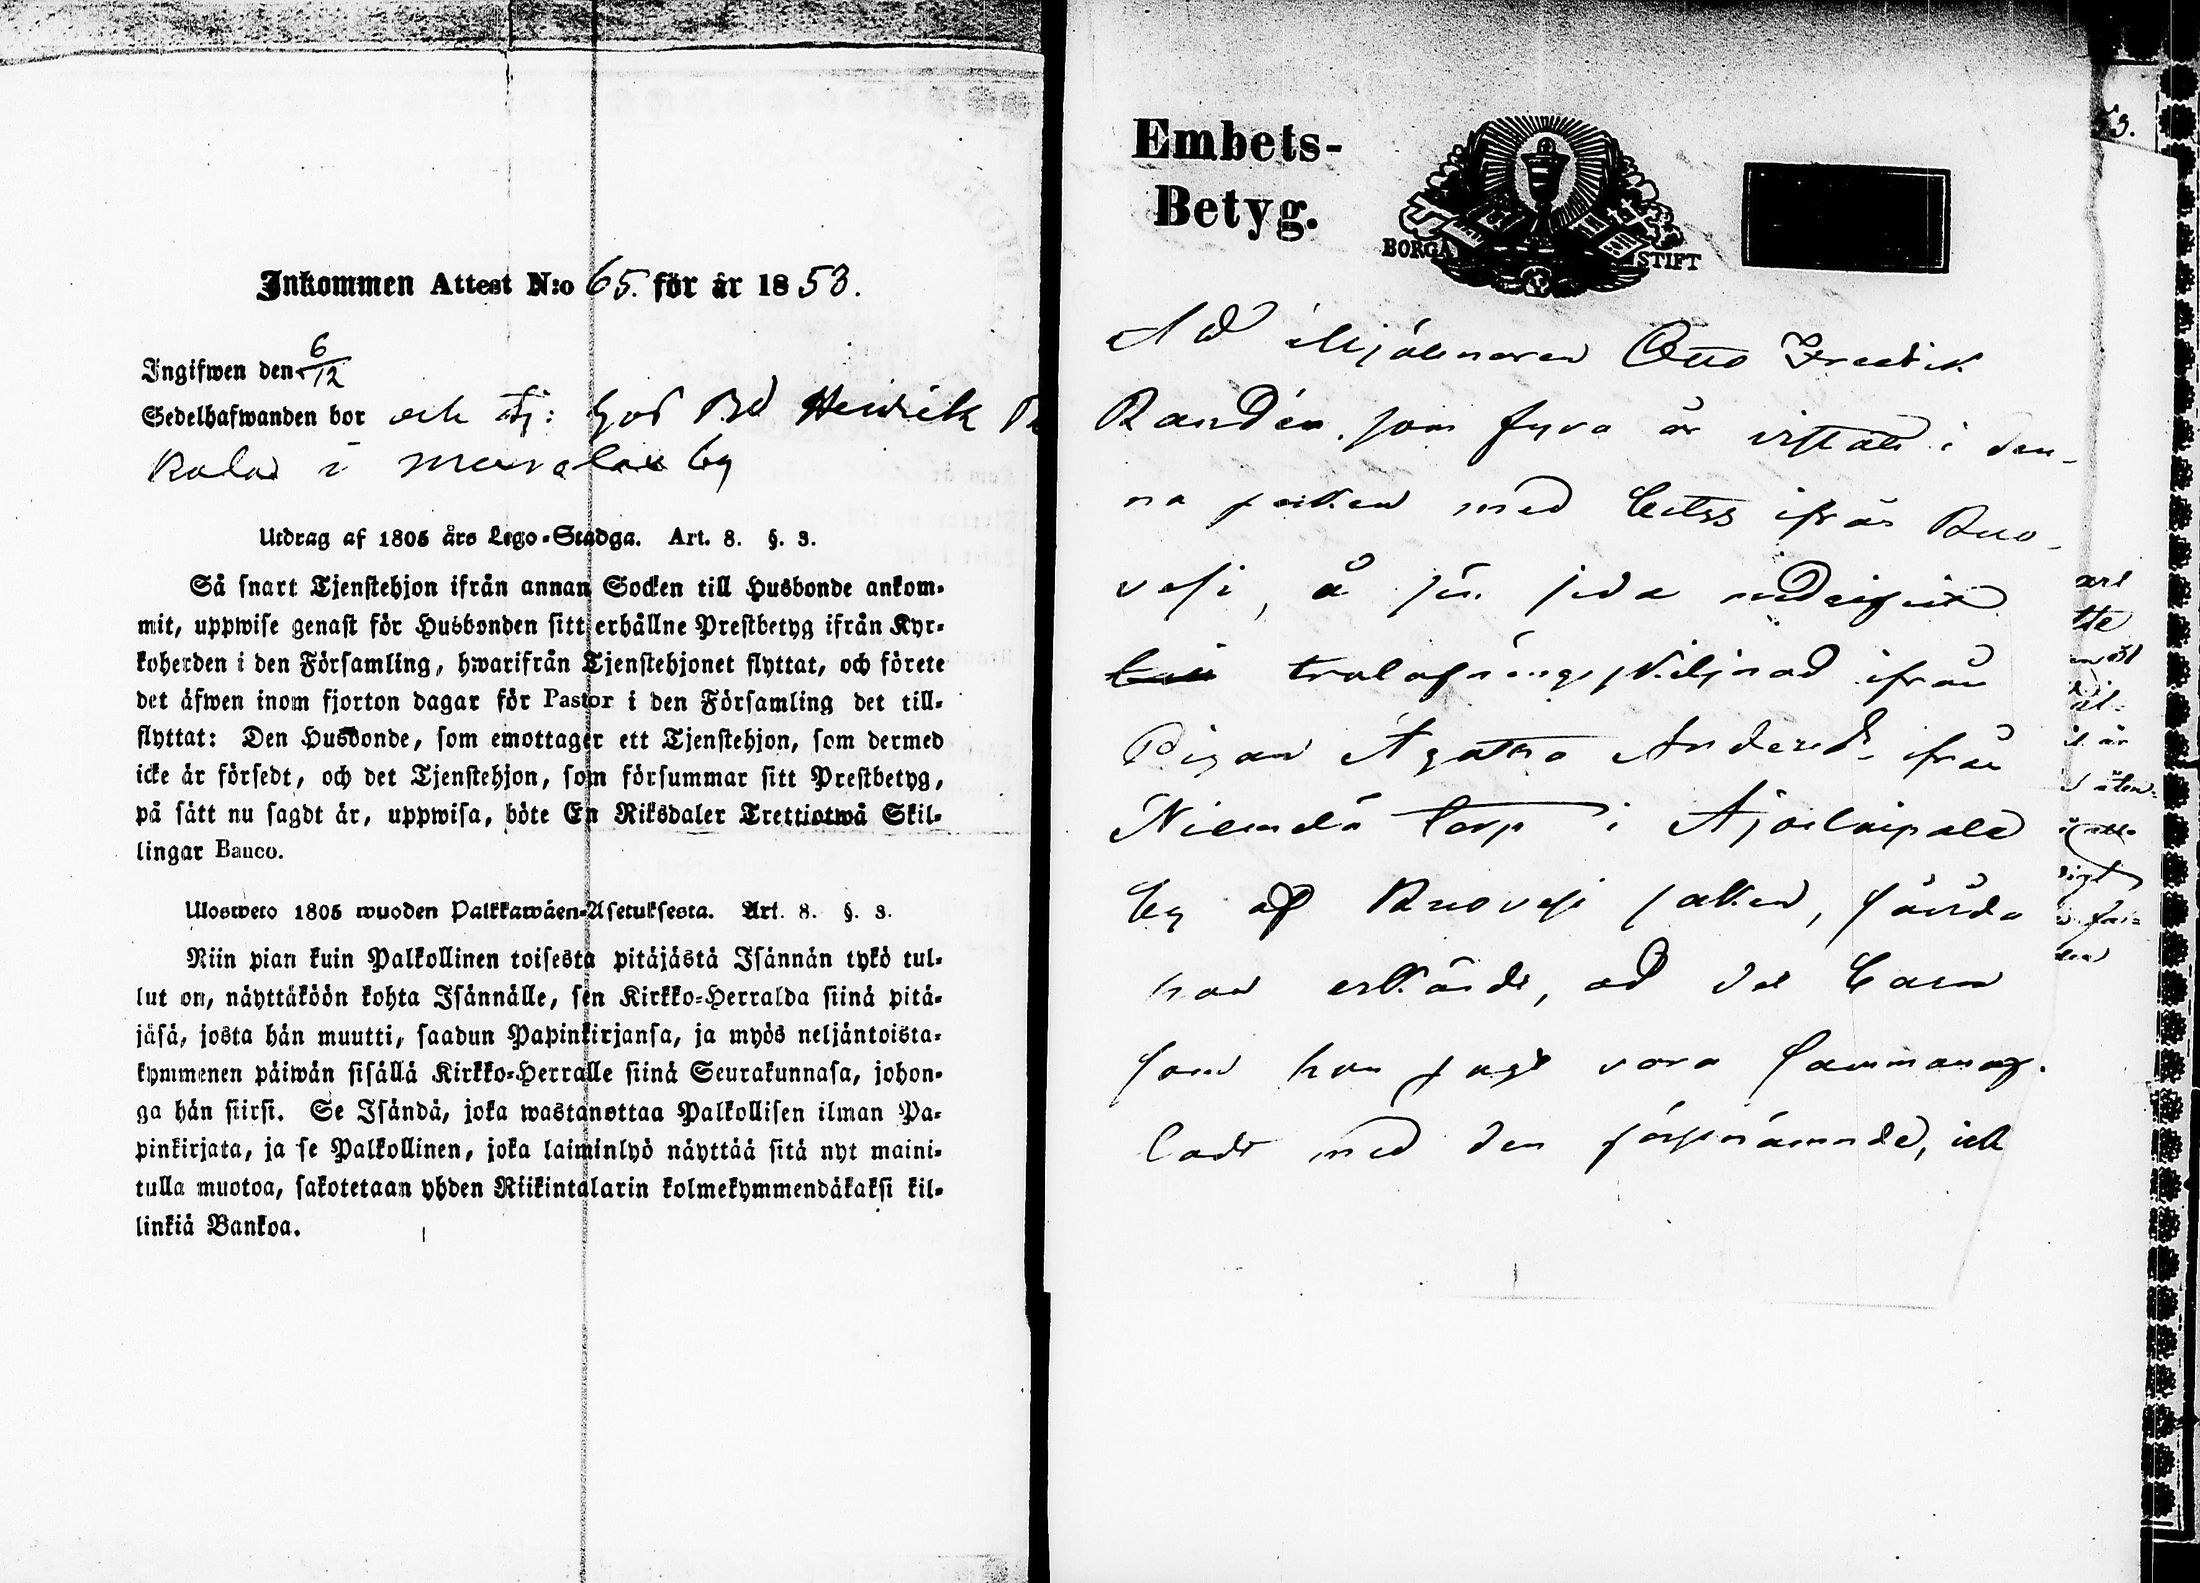 Inkommen Attest N:o 65. för år 1853.
Ingifwen den 6/12
Sedelhafwanden bor och tj: hos Bd Henrik
i by
Utdrag af 1805 års Lego-Stadga. Art. 8. §. 3.
Så snart Tjenstehjon ifrån annan Socken till Husbonde ankom-
mit, uppwise genast för Husbonden sitt erhållne Prestbetyg ifrån Kyr-
koherden i den Församling, hwarifrån Tjenstehjonet flyttat, och förete
det äfwen inom fjorton dagar för Pastor i den Församling det till-
flyttat: Den Husbonde, som emottager ett Tjenstehjon, som dermed
icke är försedt, och det Tjenstehjon, som försummar sitt Prestbetyg,
på sätt nu sagdt är, uppwisa, böte En Riksdaler Trettiotwå Skil-
lingar Banco.
Ulosweto 1805 wuoden Palkkawäen-Asetuksesta. Art. 8. §. 3.
Niin pian kuin Palkollinen toisesta pitäjästä Isännän tykö tul-
lut on, näyttäköön kohta Isännälle, sen Kirkko-Herralda siinä pitä-
jäsä, josta hän muutti, saadun Papinkirjansa, ja myös neljäntoista-
kymmenen päiwän sisällä Kirkko-Herralle siinä Seurakunnasa, johon-
ga hän siirsi. Se Isändä, joka wastanottaa Palkollisen ilman Pa-
pinkirjata, ja se Palkollinen, joka laiminlyö näyttää sitä nyt maini-
tulla muotoa, sakotetaan yhden Riikintalarin kolmekymmendäkaksi kil-
linkiä Bankoa.
Embets-
Betyg.
BORGÅ STIFT
Ad Mjölnaren Otto Fredrik
Randén, som fyra år vistats i den-
na socken med betyg ifrån Ruo-
vesi, å sin sida
trolofningsskilnad ifrån
Pigan Agatha Andersd. från
Niemelä torp i
by af Ruovesi socken, sände
hon erkände, ad det barn
som hon sagt vara sammanaf-
ladt med den förstnämnde, ick